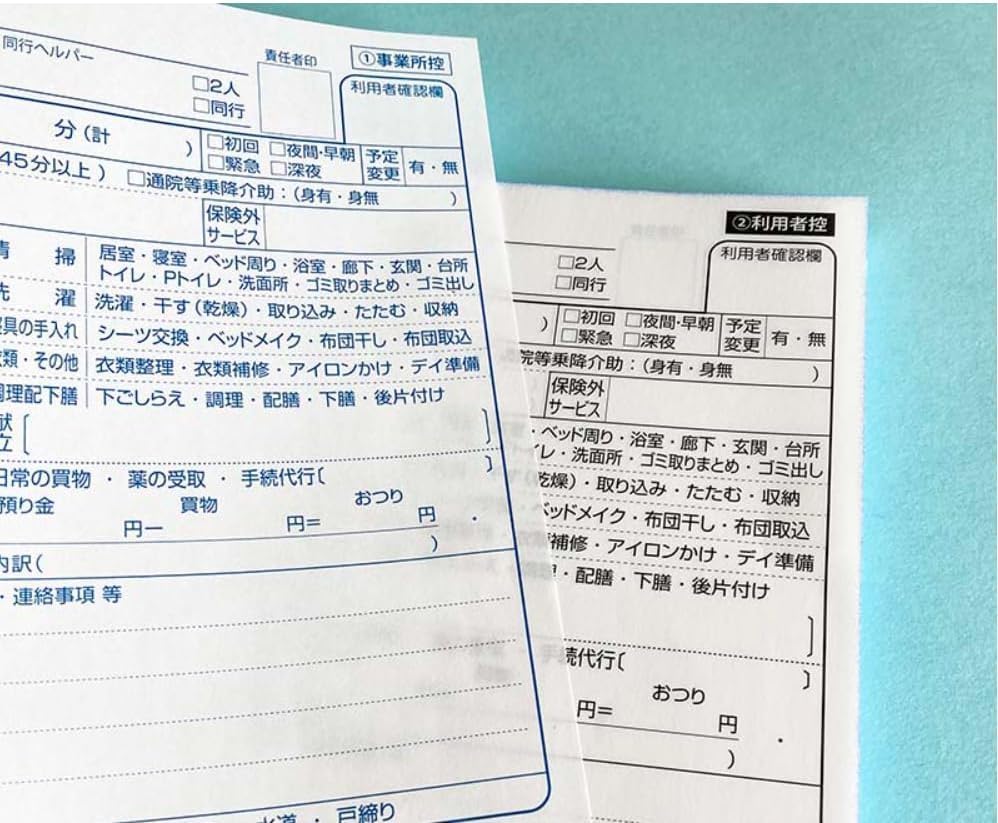 同行ヘルパー
責任者印
①事業所控
□2人
□同行
利用者確認欄
分(計 )
□初回 □夜間・早朝
□緊急 □深夜
予定
変更
有・無
45分以上) □通院等乗降介助:(身有・身無 )
保険外
サービス
掃 居室・寝室・ベッド周り・浴室・廊下・玄関・台所
トイレ・Pトイレ・洗面所・ゴミ取りまとめ・ゴミ出し
洗 濯 洗濯・干す(乾燥)・取り込み・たたむ・収納
具の手入れ シーツ交換・ベッドメイク・布団干し・布団取込
類・その他 衣類整理・衣類補修・アイロンかけ・デイ準備
理配下膳 下ごしらえ・調理・配膳・下膳・後片付け
献
立
日常の買物 ・ 薬の受取 ・ 手続代行( )
預り金 買物 おつり
円ー 円= 円 .
内訳( )
・連絡事項 等
水道 ・ 戸締り
②利用者控
□2人
□同行
利用者確認欄
) □初回 □夜間・早朝
□緊急 □深夜
予定
変更
有・無
院等乗降介助:(身有・身無 )
保険外
サービス
・ベッド周り・浴室・廊下・玄関・台所
イレ・洗面所・ゴミ取りまとめ・ゴミ出し
乾燥)・取り込み・たたむ・収納
ベッドメイク・布団干し・布団取込
補修・アイロンかけ・デイ準備
・配膳・下膳・後片付け
続代行( )
おつり
円= 円 .
)